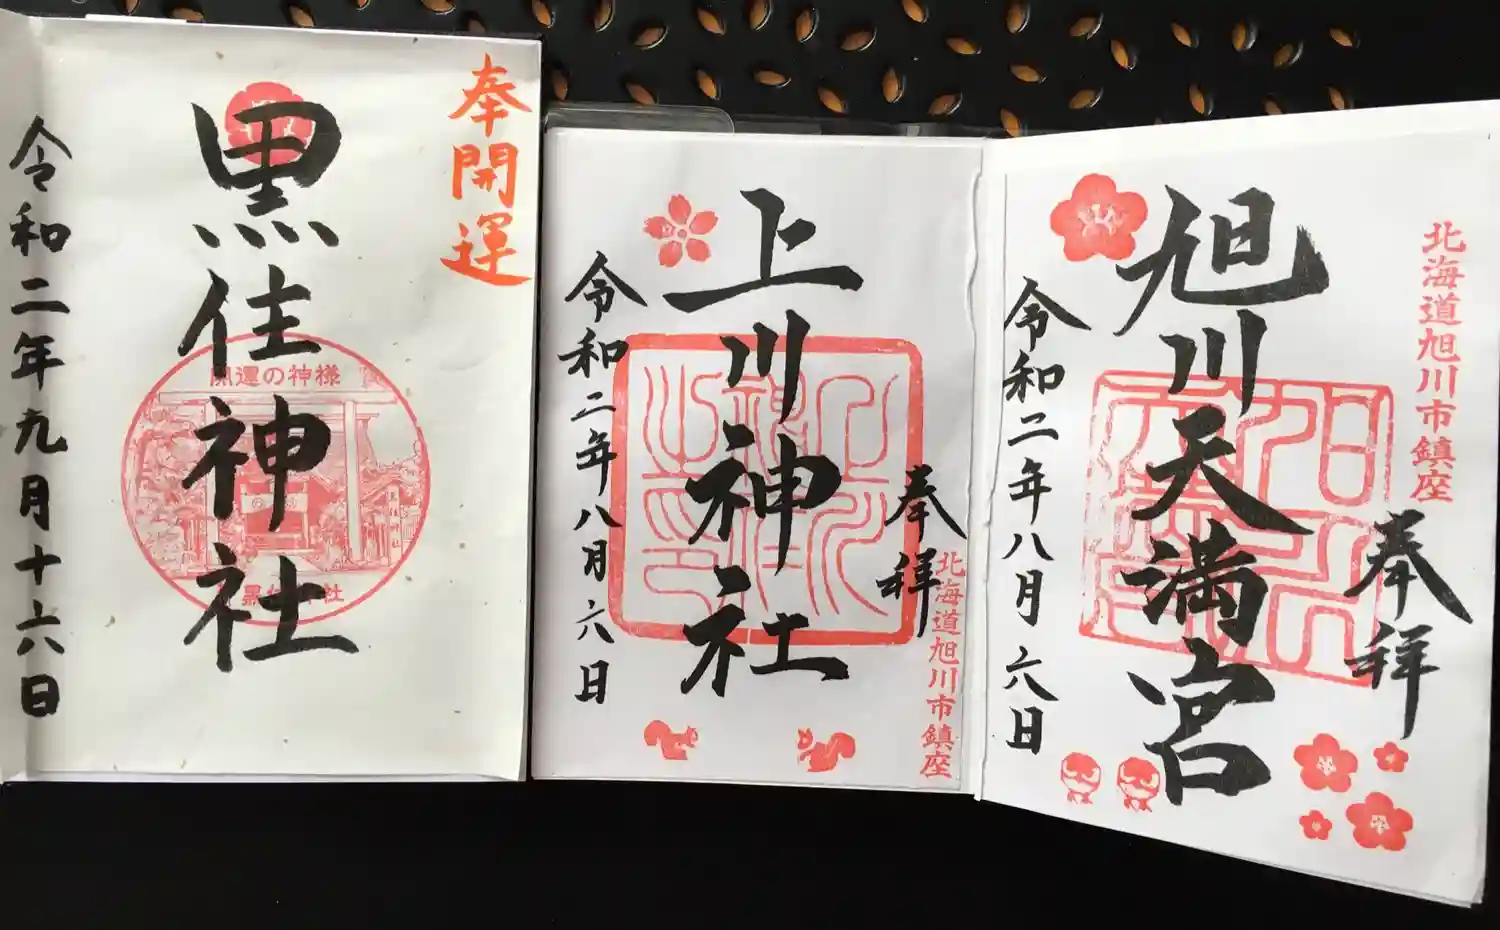 奉開運
黒住神社
開運の神様
令和二年九月十六日
奉拝
北海道旭川市鎮座
上川神社
令和二年八月六日
北海道旭川市鎮座
奉拝
旭川天満宮
令和二年八月六日